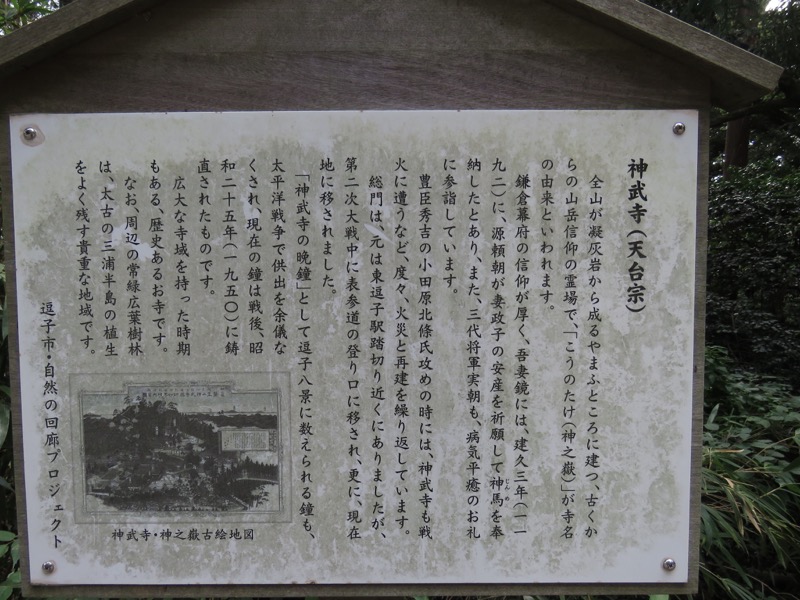 神武寺（天台宗）
全山が凝灰岩から成るやまふところに建つ、古くか
らの山岳信仰の霊場で、「こうのたけ（神之嶽）」が寺名
の由来といわれます。
鎌倉幕府の信仰が厚く、吾妻鏡には、建久三年（一一
九二）に、源頼朝が妻政子の安産を祈願して神馬を奉
じんめ
納したとあり、また、三代将軍実朝も、病気平癒のお礼
に参詣しています。
豊臣秀吉の小田原北條氏攻めの時には、神武寺も戦
火に遭うなど、度々、火災と再建を繰り返しています。
総門は、元は東逗子駅踏切り近くにありましたが、
第二次大戦中に表参道の登り口に移され、更に、現在
地に移されました。
「神武寺の晩鐘」として逗子八景に数えられる鐘も、
太平洋戦争で供出を余儀な
くされ、現在の鐘は戦後、昭
和二十五年（一九五〇）に鋳
直されたものです。
広大な寺域を持った時期
もある、歴史あるお寺です。
なお、周辺の常緑広葉樹林
は、太古の三浦半島の植生
をよく残す貴重な地域です。
逗子市・自然の回廊プロジェクト
神武寺・神之嶽古絵地図